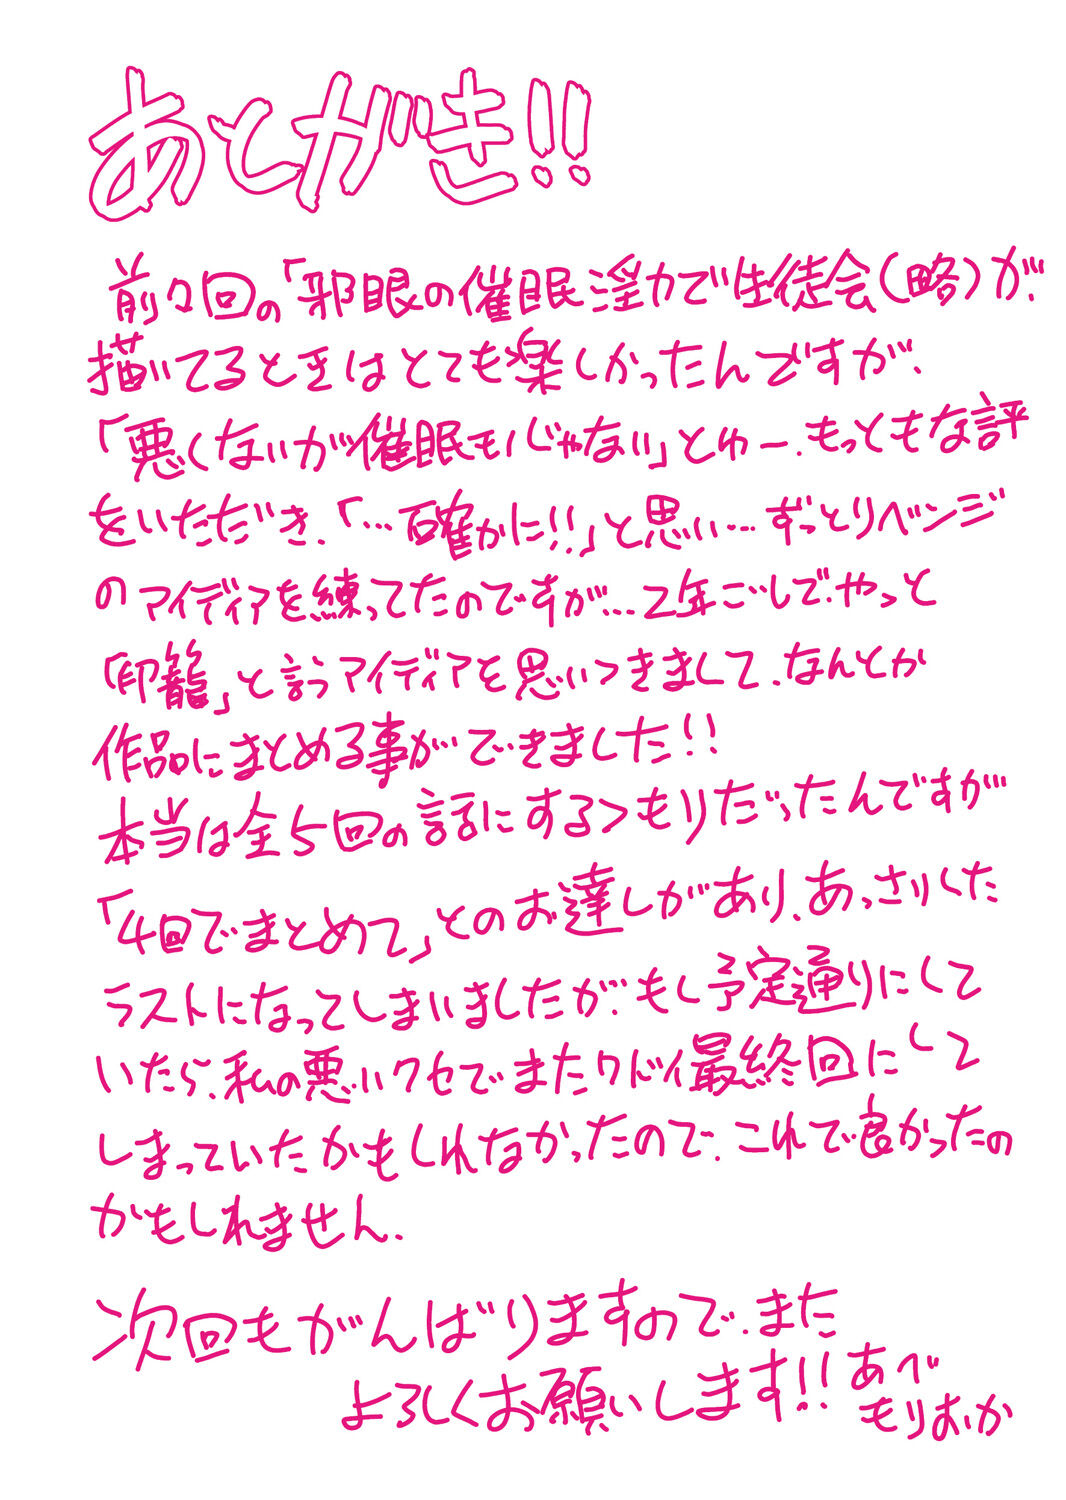 あとがき!!
前々回の「邪眼の催眠淫力で生徒会(略)が、
描いてるときはとても楽しかったんですが、
「悪くないが催眠モノじゃない」とゆー、もっともな評
をいただき、「…確かに!!」と思い…ずっとリベンジ
のアイディアを練ってたのですが…2年ごしでやっと
「印籠」と言うアイディアを思いつきまして、なんとか
作品にまとめる事ができました!!
本当は全5回の話にするつもりだったんですが
「4回でまとめて」とのお達しがあり、あっさりした
ラストになってしまいましたが、もし予定通りにして
いたら、私の悪いクセでまたクドイ最終回にして
しまっていたかもしれなかったので、これで良かったの
かもしれません、
次回もがんばりますので、また
よろしくお願いします!!
あべ
もりおか